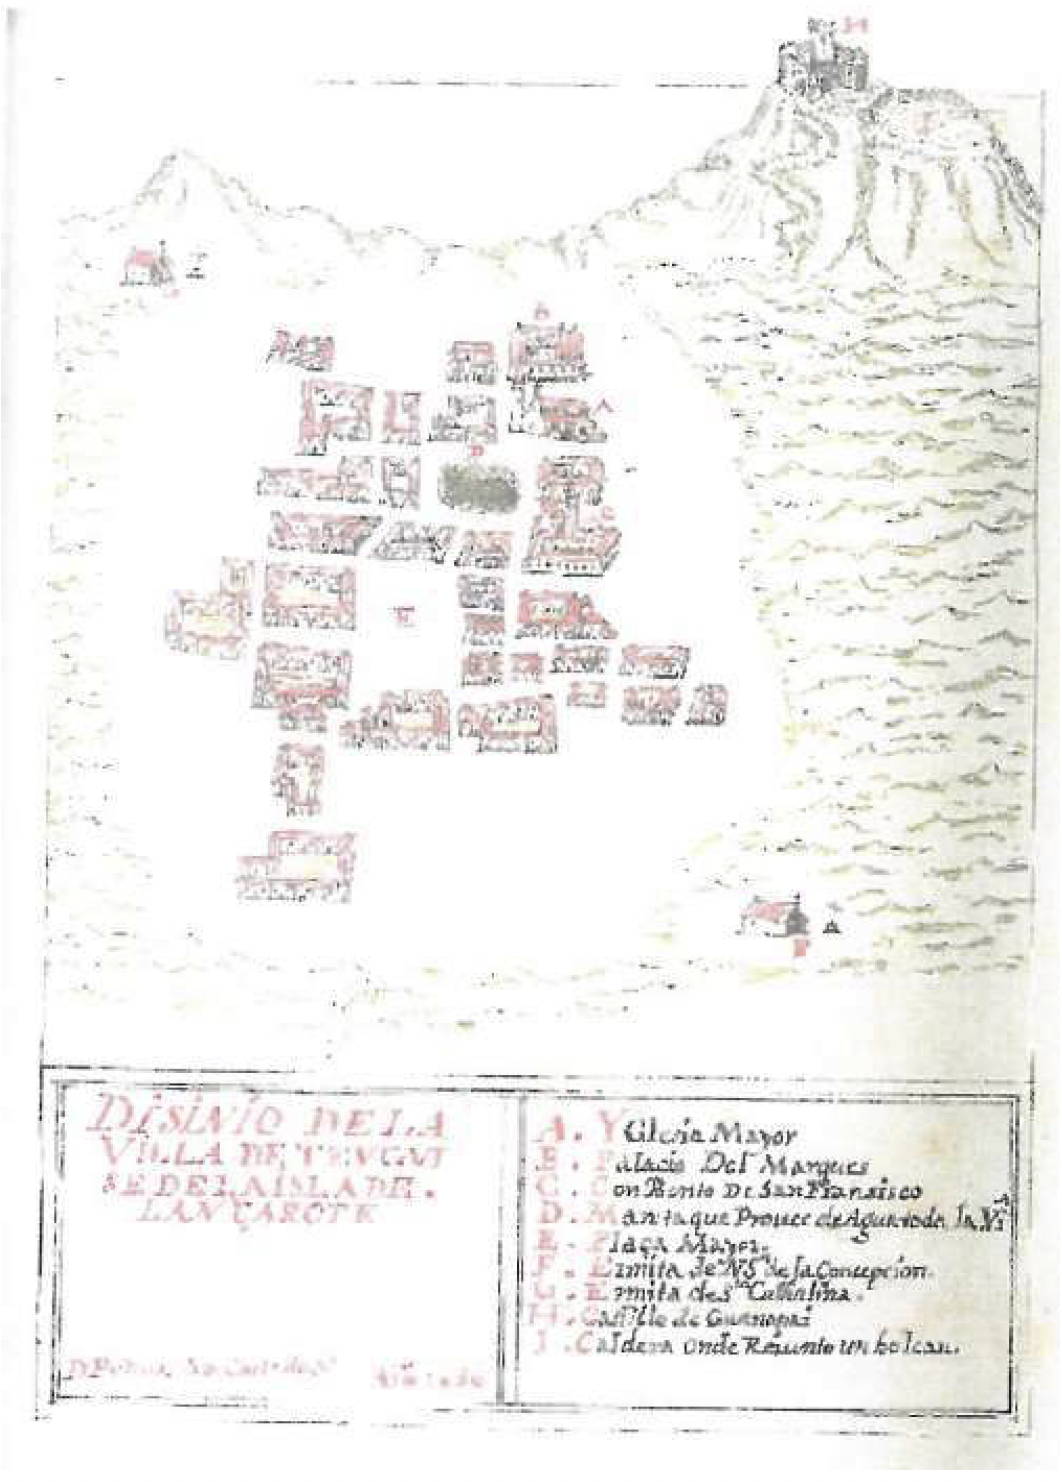 H
I
B
A
D
C
E
F
DISINIO DE LA
VILLA DE TEVGUI
SE DE LA ISLA DE.
LANÇAROTE
A. YGlesia Mayor
B. Palacio Del Marques
C. Conbento De San Fransisco
D. Mareta que Prouee de Agua toda la Vª
E. Plaça Mayor.
F. Ermita de Nª Sª de la Concepcion.
G. Ermita de Sta Cathalina.
H. Castillo de Guanapai
I. Caldera onde Rebento un bolcan.